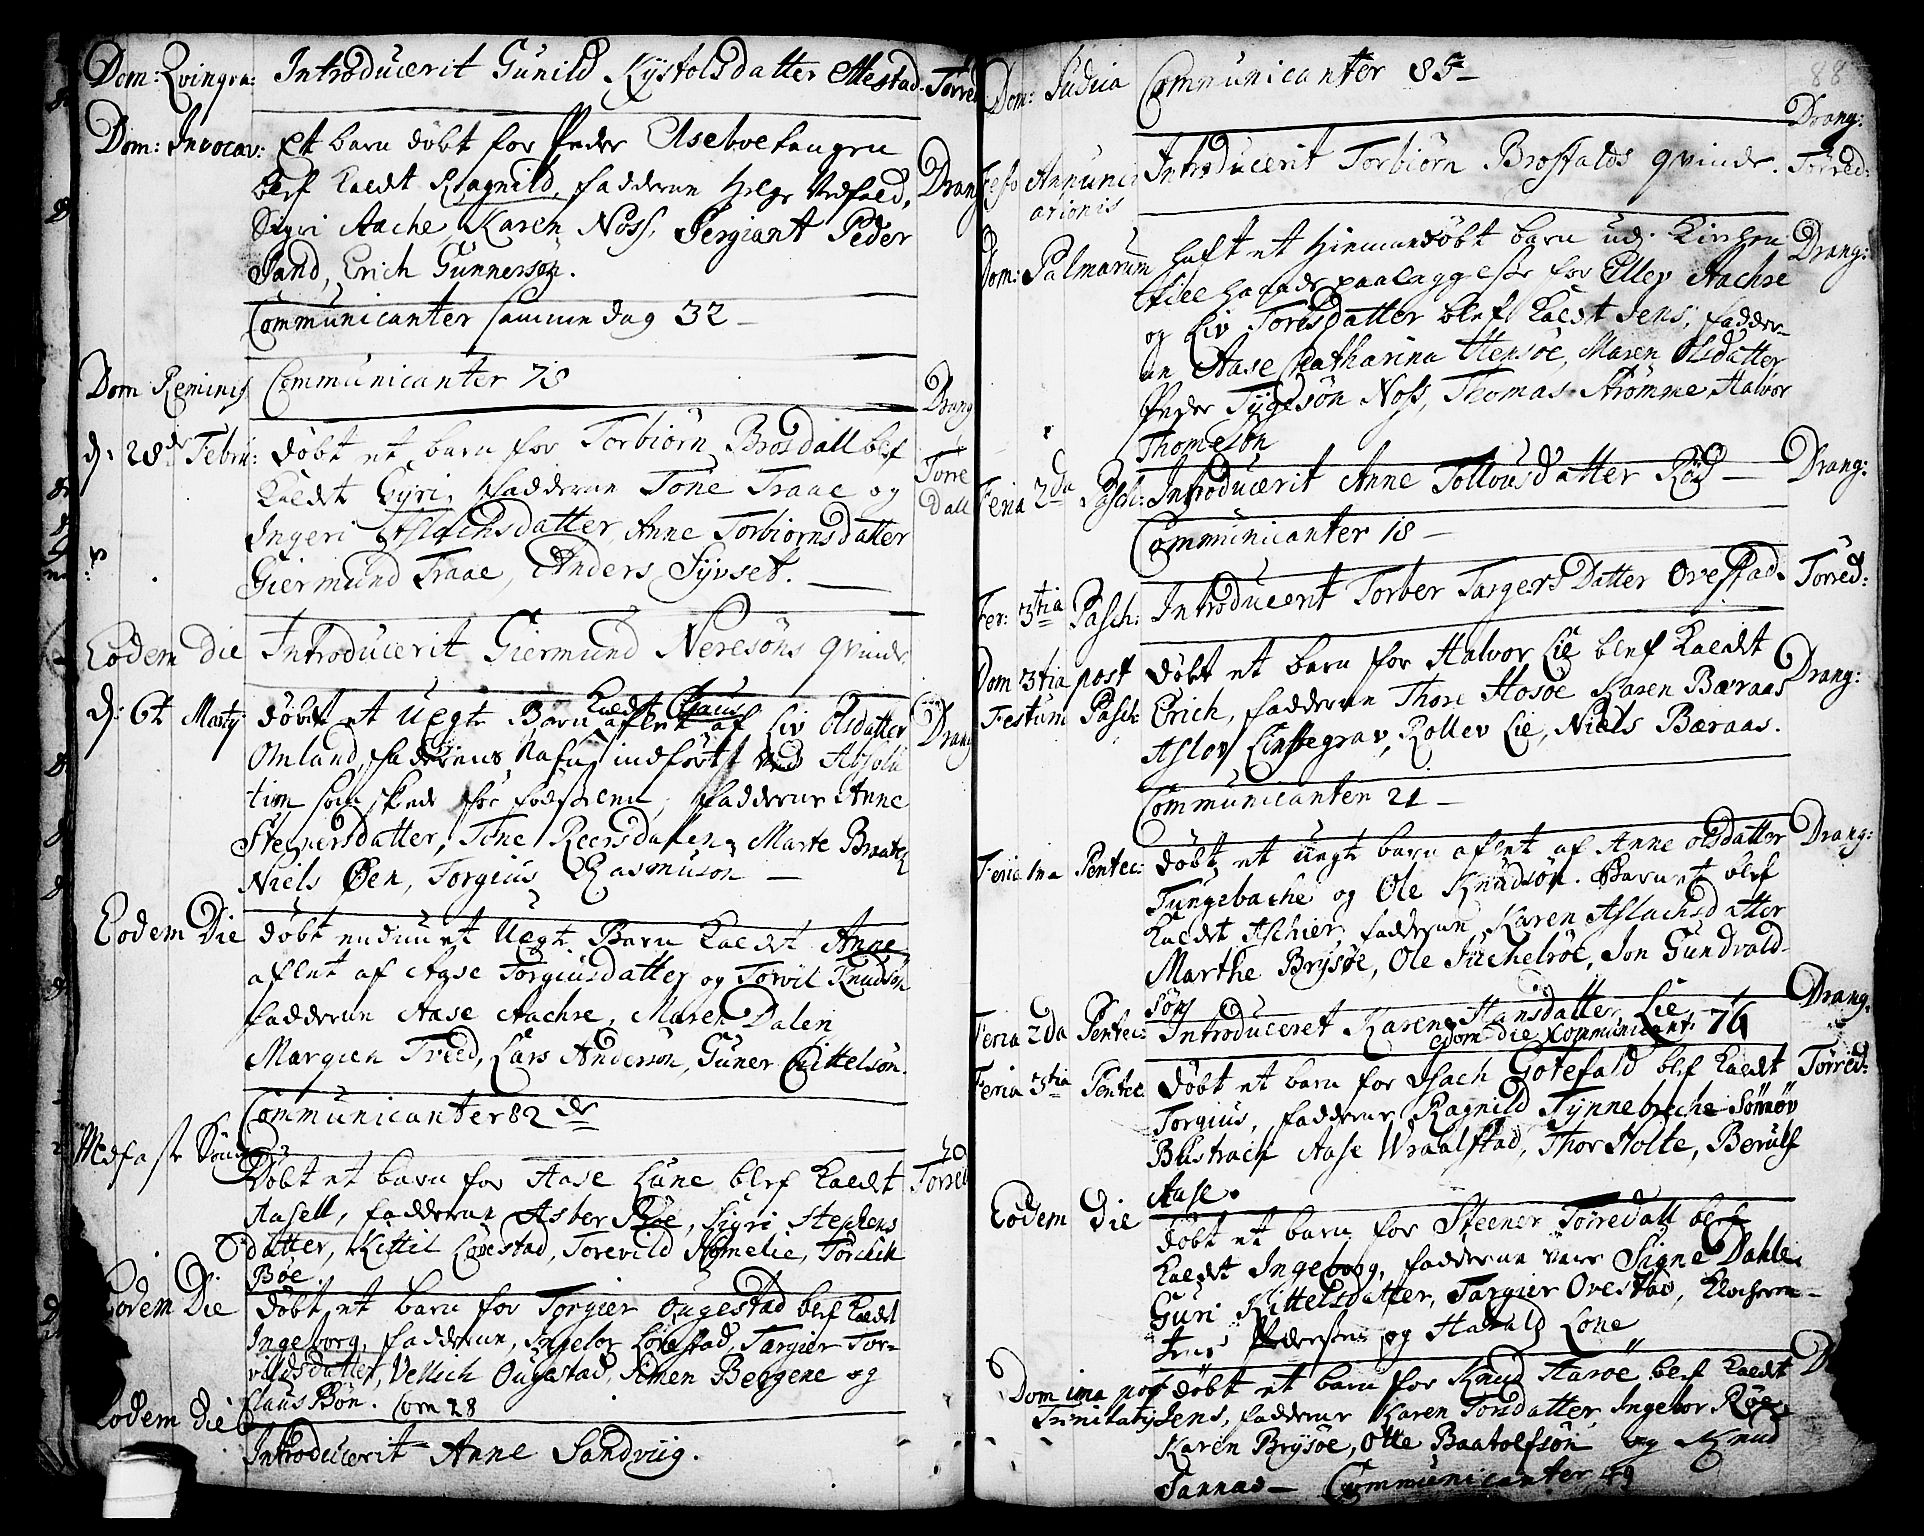 Dom: Qvinqva: Introducerit Gunild Kystolsdatter Mestad. Torred
Dom: Invocav: Et barn döbt for Peder Aselvoetangen
blef kaldt Ragnild, fadderne Helge Vedfald, Drang
Sigri Aache, Karen Noss, Sergiant Peder
Sand, Erich Gunnersön.
Communicanter samme dag 32 -
Dom Reminis Communicanter 78 Drang
d: 28de Febru: döbt et barn for Torbiörn Brosdall blef Torre
kaldt Gyri, fadderne Tone Traae og dall
Ingeri Aslachsdatter, Anne Torbiornsdatter
Giermund Traae, Anders Syvset.
Eodem Die Introducerit Giermund Neresöns qvinde.
d: 6t Marty döbt et uegte Barn kaldt Claus aflet af Liv Olsdatter Drang
Omland, faderens Nafn indfört ved Absolu
tion som skede for födselen, fadderne Anne
Stenersdatter, Tone Reersdalen, Marte Braaten
Niels Öen, Torgius Rasmusön -
Eodem Die döbt endnu et Uegte Barn kaldt Anne
aflet af Aase Torgiusdatter og Torvil Knudsön
fadderne Aase Aachre, Maren Dalen
Margien Treed, Lars Anderson, Guner Kittelsön.
Communicanter 82 de
Midfaste Söndag
Döbt et barn for Aase Lune blef kaldt Torred
Aasell, fadderne Asber Böe, Sigri Stephens
datter, Kittil Lövestad, Torevild Homelie, Torchil
Böe
Eodem Die döbt et barn for Torgier Ougestad blef kaldt
Ingeborg, fadderne, Ingebor Lövestad, Targier Tor-
vildsdatter, Vellich Ougestad, Simen Bergene og
Claus Bön. Com 28
Eodem die
Introducerit Anne Sandviig.
88
Dom: Judica Communicanter 85 -
Drang:
Festo Annunci Introducerit Torbiörn Brosfalds qvinde. Torred:
ationis
Dom: Palmarum haft et hiemmedöbt barn udj Kirchen Drang:
till haande paalaggelse for Ellev Aachre
og Liv Toresdatter blef kaldt Jens, fadder-
ne Aase Catharina Stensöe, Maren Olsdatter
Peder Tygesön Noss, Thomas Strömme Halvor
Thomesön
Feria 2da Pasch: Introducerit Anne Tollousdatter Röd - Drang:
Communicanter 18 -
Fer: 3tia Pasch: Introducerit Torber TargersDatter Ovestad. Torred:
Dom 3tia post döbt et barn for Halvor Lie blef kaldt Drang:
Festum Pasch: Erich, fadderne Thore Hosöe Karen Bæraas
Aslov Linstegrav, Rollev Lie, Niels Bæraas.
Communicanter 21 -
Feria 1ma Pentec: döbt et uegte barn aflet af Anne olsdatter Drang:
Tungebache og Ole Knudsön. Barnet blef
kaldt Aschier fadderne, Karen Aslachsdatter
Marthe Brysöe, Ole Juchelröe, Jon Gundvald-
sön
Feria 2da Pentec: Introduceret Karen Hansdatter Lie Drang:
eodem die Communicant: 76
Feria 3tia Pentec: döbt et barn for Isach Gotefald blef kaldt Torred:
Torgius, fadderne Ragnild Tynnebeche Sönöv
Bustrach Aase Wraalstad, Thor Holte, Berulf
Aase.
Eodem Die döbt et barn for Steener Torredall blef
kaldt Ingeborg, fadderne vare Signe Dahle,
Guri Kittelsdatter, Targier Ovestad, Klocheren
Jens Pedersen og Harald Lone
Dom 1ma post döbt et barn for Knud Aaröe blef kaldt D
Trinitatis Jens, fadderne Karen Torsdatter, Ingebor Röe,
Karen Brysöe, Otte Baatolfsön og Knud
Sannas - Communicanter 49